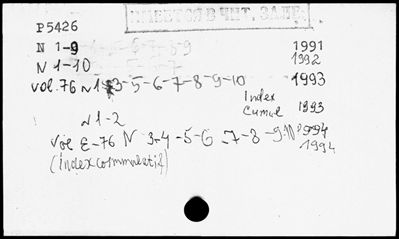 ИМЕЕТСЯ В ЧИТ. ЗАЛЕ
P5426
N 1-9 1991
N 1-10 1992
vol. 76 N 1-3-5-6-7-8-9-10 1993
Index
Cumul 1993
N 1-2
vol E-76 N 3-4-5-6-7-8-9-10 1994
1994
(Index commulatif)